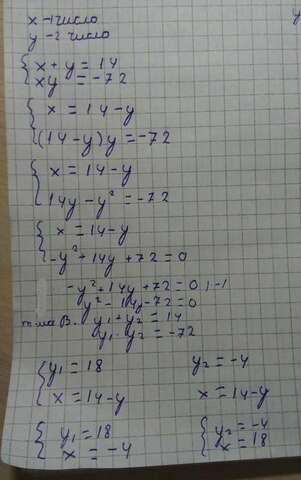 x -1 число
y -2 число
x + y = 14
xy = -72
x = 14-y
(14-y)y = -72
x = 14-y
14y - y² = -72
x = 14-y
-y² + 14y + 72 = 0
-y² + 14y + 72 = 0 | · -1
y² - 14y - 72 = 0
т-ма В. y₁ + y₂ = 14
y₁ · y₂ = -72
y₁ = 18 y₂ = -4
x = 14-y x = 14-y
y₁ = 18 y₂ = -4
x = -4 x = 18